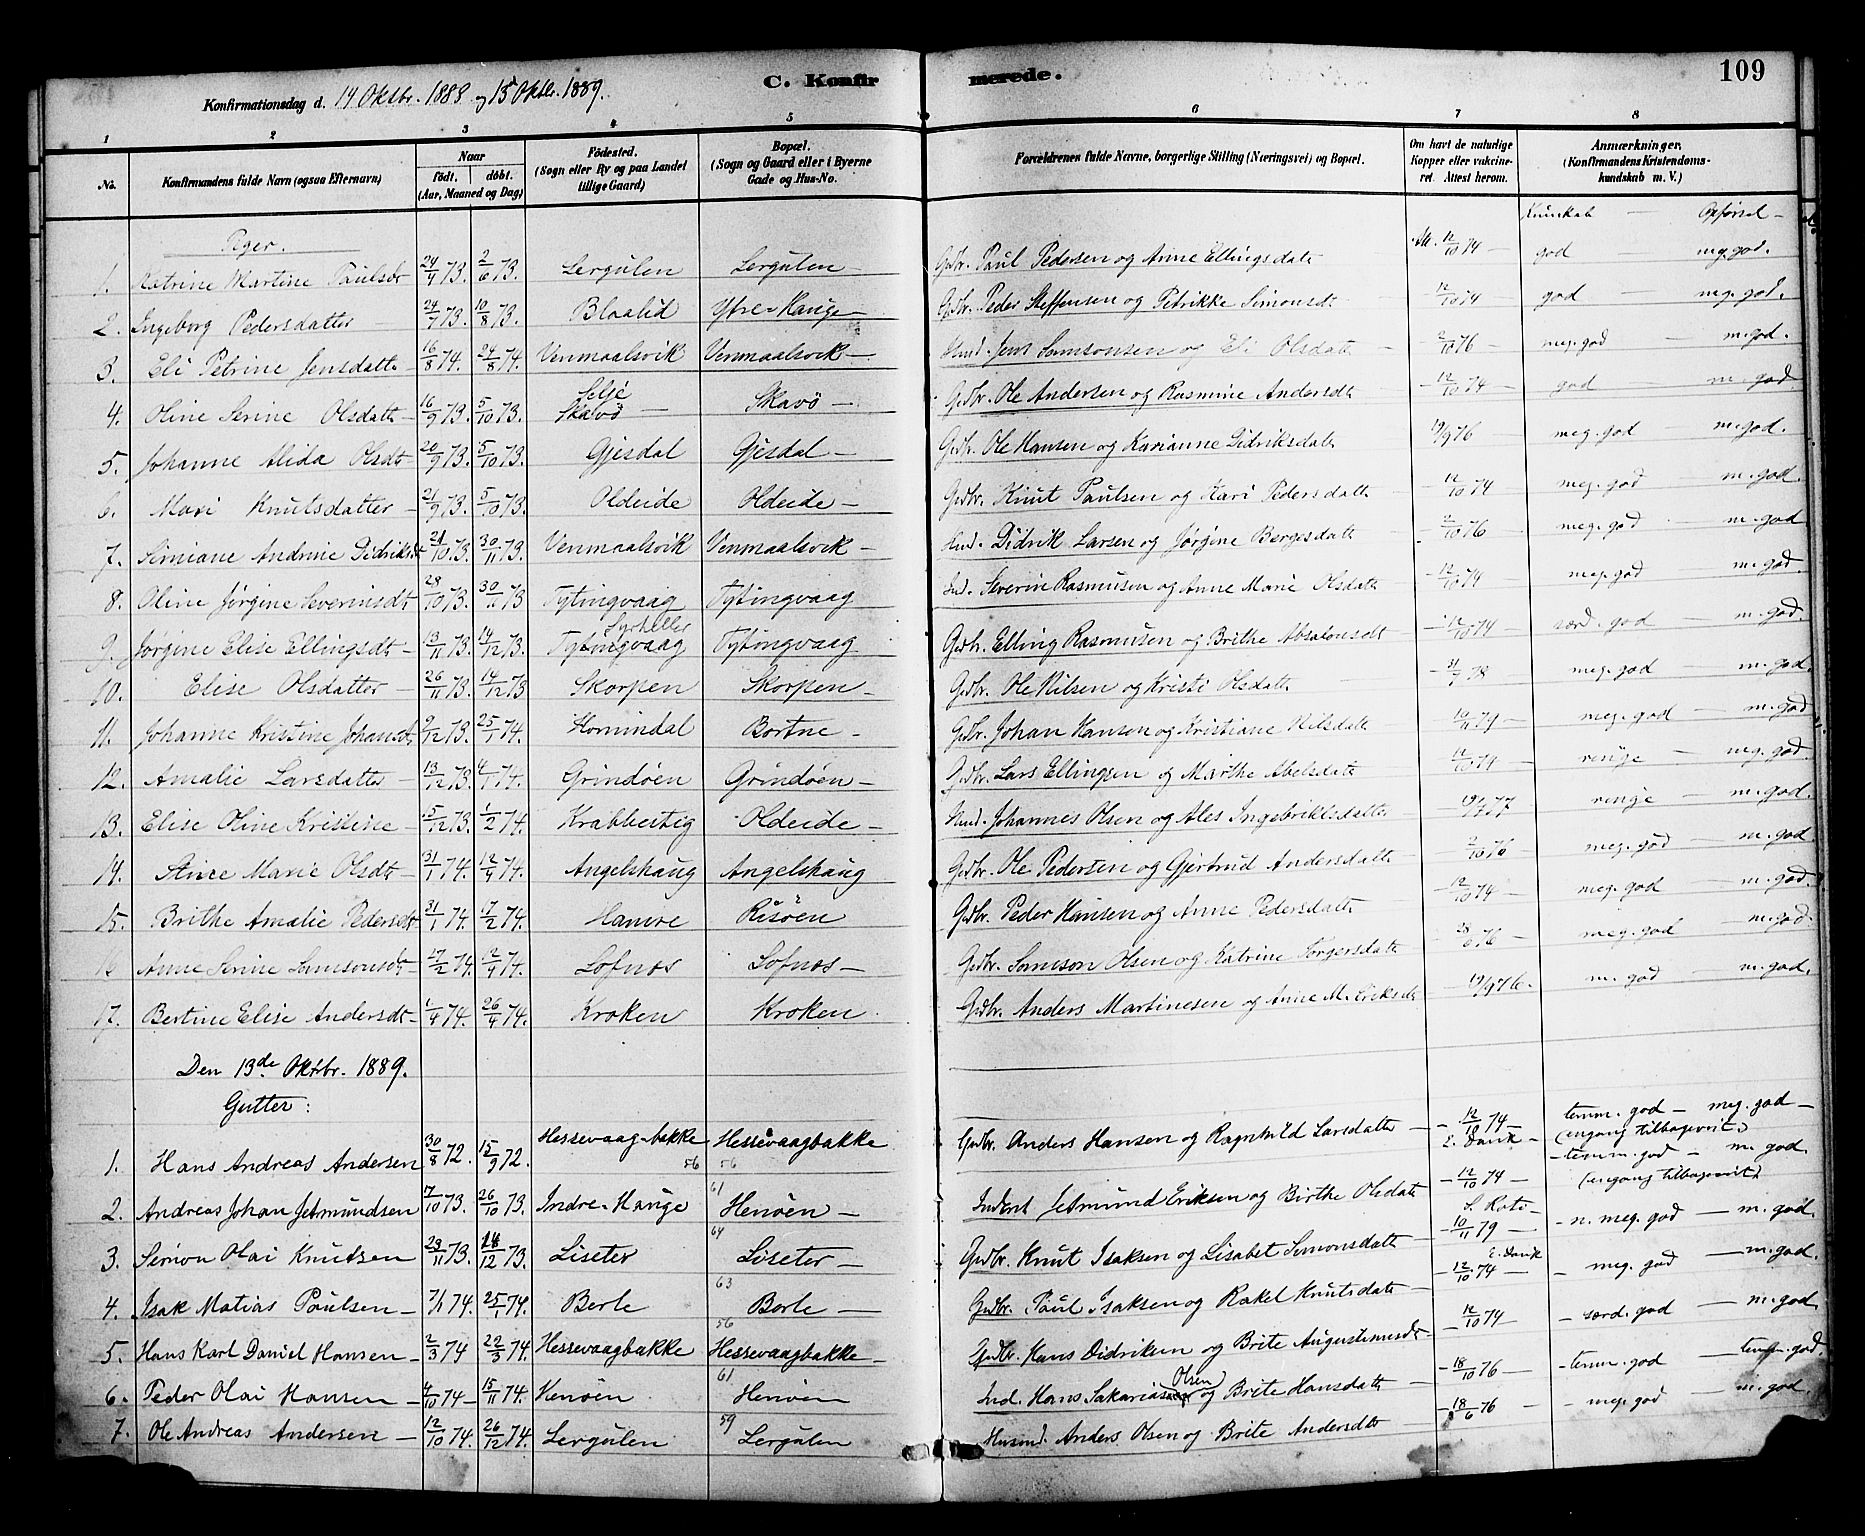 109
C. Konfirmerede.
Konfirmationsdag d. 14 Oktbr. 1888 og 13 Oktbr. 1889.
1 2 3 4 5 6 7 8
No. Konfirmandens fulde Navn (ogsaa Efternavn) Naar født. døbt. (Aar, Maaned og Dag) Fødested. (Sogn eller By og paa Landet tillige Gaard) Bopæl. (Sogn og Gaard eller i Byerne Gade og Hus-No. Forældrenes fulde Navne, borgerlige Stilling (Næringsvei) og Bopæl. Om havt de naturlige Kopper eller vaccineret. Attest herom. Anmærkninger. (Konfirmandens Kristendomskundskab m. V.)
Kundskab — Opførsel —
Piger.
1. Katrine Martine Paulsdt 24/4 73. 2/6 73. Lergulen Lergulen — Gdbr. Paul Pedersen og Anne Ellingsdatt 12/10 74 — god — meg. god.
2. Ingeborg Pedersdatter 24/7 73. 10/8 73. Blaalid Ytre-Hauge — Gdbr. Peder Steffensen og Petrikke Simonsdt 12/10 74 god — meg. god.
3. Eli Petrine Jensdatt 16/8 74. 24/8 74. Venmaalsvik Venmaalsvik — Husd. Jens Samsonsen og Eli Olsdatt 2/10 76 — meg. god — m. god.
4. Oline Serine Olsdatt 16/9 73. 5/10 73. Selje Skavø — Skavø — Gdbr. Ole Andersen og Rasmine Andersdt — 12/10 74 — god — m. god
5. Johanne Alida Olsdt 20/9 73. 5/10 73. Gjesdal Gjesdal — Gdbr. Ole Hansen og Karianne Didriksdatt 19/9 76 meg. god — m. god.
6. Mari Knutsdatter — 21/9 73. 5/10 73. Oldeide Oldeide — Gdbr. Knut Paulsen og Kari Pedersdatt — 12/10 74 meg. god — m. god.
7. Simiane Andrine Didriksdt 21/10 73. 30/11 73. Venmaalsvik Venmaalsvik — Husd. Didrik Larsen og Jørgine Bergesdatt — 2/10 76 meg. god — m. god
8. Oline Jørgine Severinsdt 28/10 73. 30/11 73 Tytingvaag Tytingvaag Ind. Severin Rasmusen og Anne Marie Olsdatt — 12/10 74 meg. god — m. god.
9. Jørgine Elise Ellingsdt — 13/11 73. 14/12 73. Tytingvaag Tytingvaag Gdbr. Elling Rasmusen og Brithe Absalonsdt — 12/10 74 særd. god — m. god.
10. Elise Olsdatter — 26/11 73. 14/12 73 Skorpen Skorpen — Gdbr. Ole Nilsen og Kristi Olsdatt — 31/7 78 meg. god — m. god.
11. Johanne Kristine Johansdt 9/12 73. 25/1 74. Hornindal Bortne — Gdbr. Johan Hansen og Kristiane Nilsdatt — 10/11 79 — meg. god — m. god
12. Amalie Larsdatter — 13/12 73. 4/1 74. Grindøen Grindøen — Gdbr. Lars Ellingsen og Marthe Abelsdatt 12/10 74 — ringe — meg. god
13. Elise Oline Kristine — 5/12 73. 1/2 74. Krabbestig Oldeide — Husd. Johannes Olsen og Ales Ingebriktsdatter — 19/7 77 ringe — m. god.
14. Stine Marie Olsdt — 31/1 74. 12/4 74. Angelshaug Angelshaug Gdbr. Ole Pedersen og Gjertrud Andersdatt — 2/10 76 meg. god — m. god
15. Brithe Amalie Pedersdt 31/1 74. 17/2 74. Hamre Risøen Gdbr. Peder Hansen og Anne Pedersdatt — 12/10 74 — meg. god — m. god.
16 Anne Serine Samsonsdt 17/2 74. 12/4 74. Lofnes Lofnes — Gdbr. Samson Olsen og Katrine Torgersdatt — 28/6 76 — meg. god — m. god.
17. Bertine Elise Andersdt — 1/4 74. 26/4 74. Kroken Kroken. Gdbr. Anders Martinesen og Anne M. Eriksdt — 19/9 76. m. god — m. god.
Den 13de Oktbr. 1889.
Gutter:
1. Hans Andreas Andersen 30/8 72. 15/9 72. Hessevaag-bakke 56 Hessevaagbakke 56 Gdbr. Anders Hansen og Ragnhild Larsdatter — 12/10 74 — E. Dank — temm. god — meg. god — (engang tilbagevist.)
2. Andreas Johan Jetmundsen 7/10 73. 26/10 73. Indre-Hauge 61 Henøen — Inderst Jetmund Eriksen og Birthe Olsdatt — 12/10 74 — — temm. god — m. god (engang tilbagevist)
3. Simon Olai Knutsen 23/11 73. 14/12 73. Liseter 64 Liseter — Gdbr. Knut Isaksen og Lisabet Simonsdatt — 10/11 79 — — n. meg. god — m. god.
4. Isak Matias Paulsen — 7/1 74. 25/1 74. Berle 63 Berle — Gdbr. Paul Isaksen og Rakel Knutsdatt — E. Dank — 12/10 74 — — meg. god — m. god.
5. Hans Karl Daniel Hansen — 2/3 74 22/3 74. Hessevaagbakke 56 Hessevaagbakke — Gdbr. Hans Didriksen og Brite Augustinusdt — 12/10 74 — særd. god — m. god
6. Peder Olai Hansen — 4/10 74 — 15/11 74. Henøen. 61 Henøen Ind. Hans Sakariasen Olsen og Brite Hansdatt — 18/10 76 — temm. god — temm. god.
7. Ole Andreas Andersen — 12/10 74. 26/12 74. Lergulen 59 Lergulen Husmd. Anders Olsen og Brite Andersdtt — — 18/6 76 — meg. god — m. god.